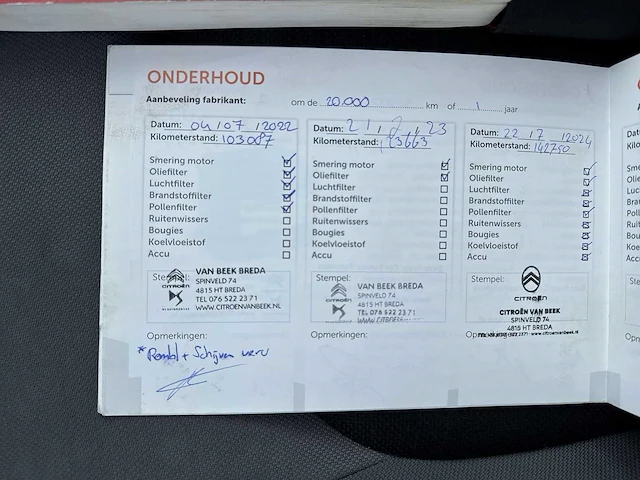 ONDERHOUD
Aanbeveling fabrikant: om de 20.000 km of 1 jaar
Datum: 04/07/2022
Kilometerstand: 103087
Smering motor
Oliefilter
Luchtfilter
Brandstoffilter
Pollenfilter
Ruitenwissers
Bougies
Koelvloeistof
Accu
Stempel:
CITROËN
VAN BEEK BREDA
SPINVELD 74
4815 HT BREDA
TEL 076 522 23 71
WWW.CITROENVANBEEK.NL
Opmerkingen:
* Rembl + Schijven
Datum: 21 23
Kilometerstand: 123663
Smering motor
Oliefilter
Luchtfilter
Brandstoffilter
Pollenfilter
Ruitenwissers
Bougies
Koelvloeistof
Accu
Stempel:
CITROËN
VAN BEEK BREDA
SPINVELD 74
4815 HT BREDA
TEL 076 522 23 71
Opmerkingen:
Datum: 22 7 2024
Kilometerstand: 142750
Smering motor
Oliefilter
Luchtfilter
Brandstoffilter
Pollenfilter
Ruitenwissers
Bougies
Koelvloeistof
Accu
Stempel:
CITROËN
CITROËN VAN BEEK
SPINVELD 74
4815 HT BREDA